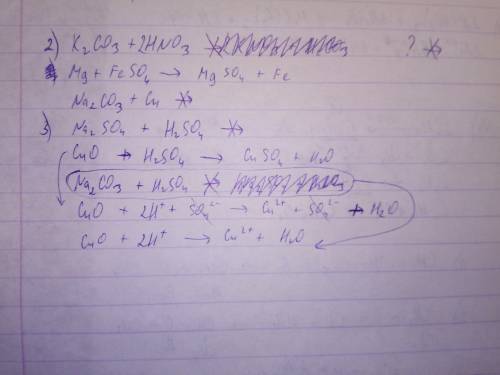 2) K₂CO₃ + 2HNO₃ ?
Mg + FeSO₄ → MgSO₄ + Fe
Na₂CO₃ + Cu ↛
3) Na₂SO₄ + H₂SO₄ ↛
CuO + H₂SO₄ → CuSO₄ + H₂O
Na₂CO₃ + H₂SO₄
CuO + 2H⁺ + SO₄²⁻ → Cu²⁺ + SO₄²⁻ + H₂O
CuO + 2H⁺ → Cu²⁺ + H₂O